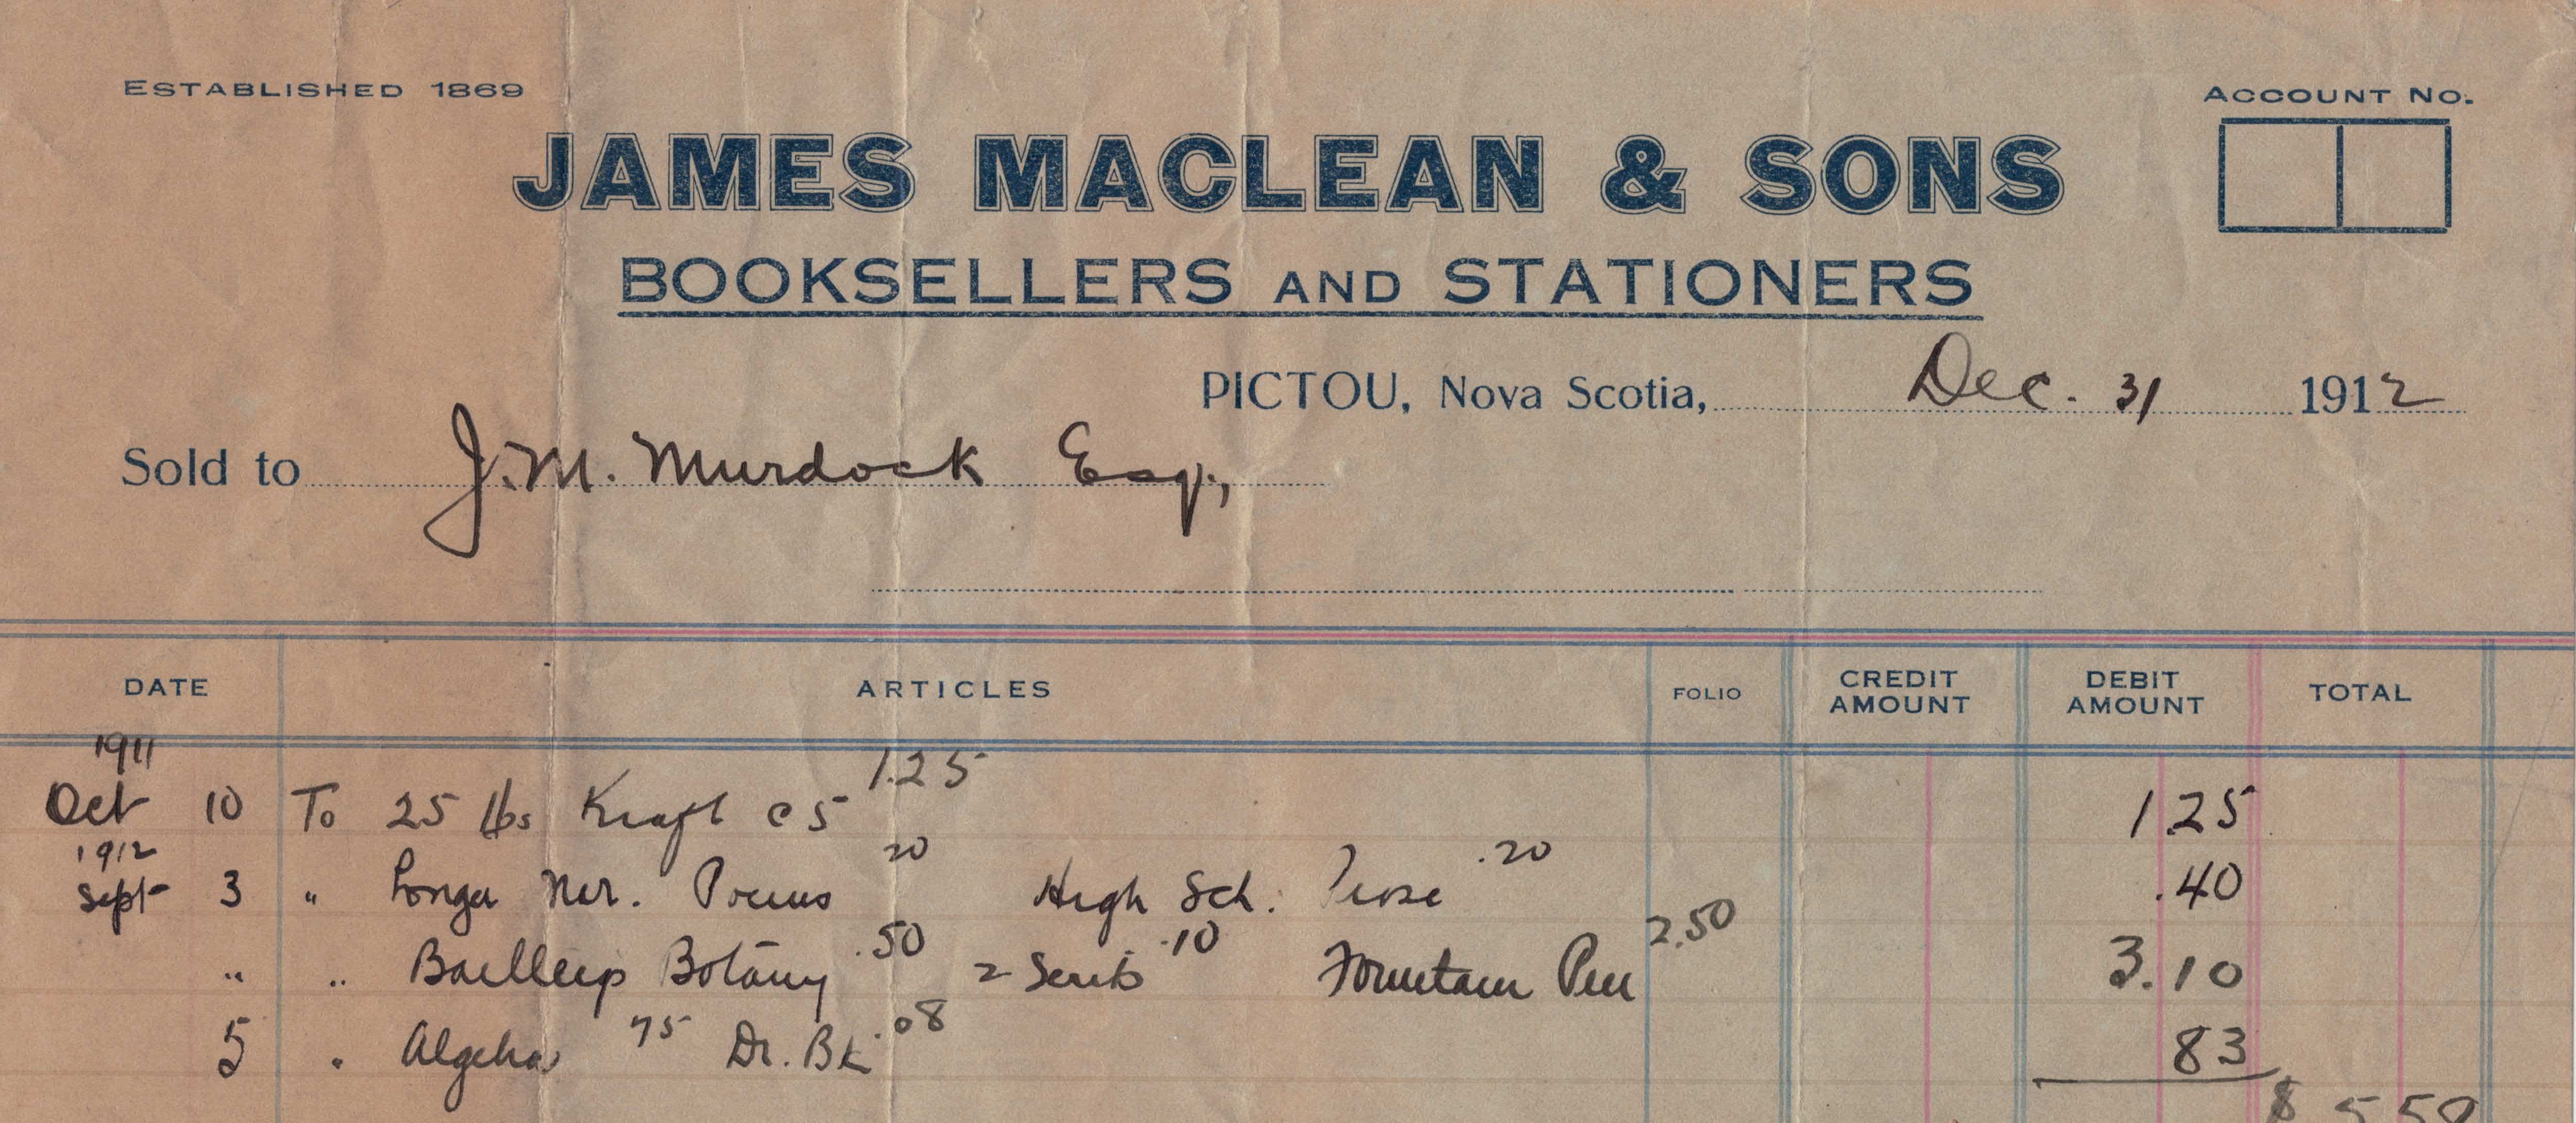 ESTABLISHED 1869
ACCOUNT NO.
JAMES MACLEAN & SONS
BOOKSELLERS AND STATIONERS
PICTOU, Nova Scotia, Dec. 31 1912
Sold to J. M. Murdock Esq.,
DATE ARTICLES FOLIO CREDIT AMOUNT DEBIT AMOUNT TOTAL
1911
Oct 10 To 25 lbs Kraft @ 5 1.25 1.25
1912
Sept 3 " Longer Nar. Poems 20 High Sch. Prose .20 .40
" " Botany .50 2 Scribs .10 Fountain Pen 2.50 3.10
5 " Algebra 75 Dr. Bk .08 83
$ 5 58